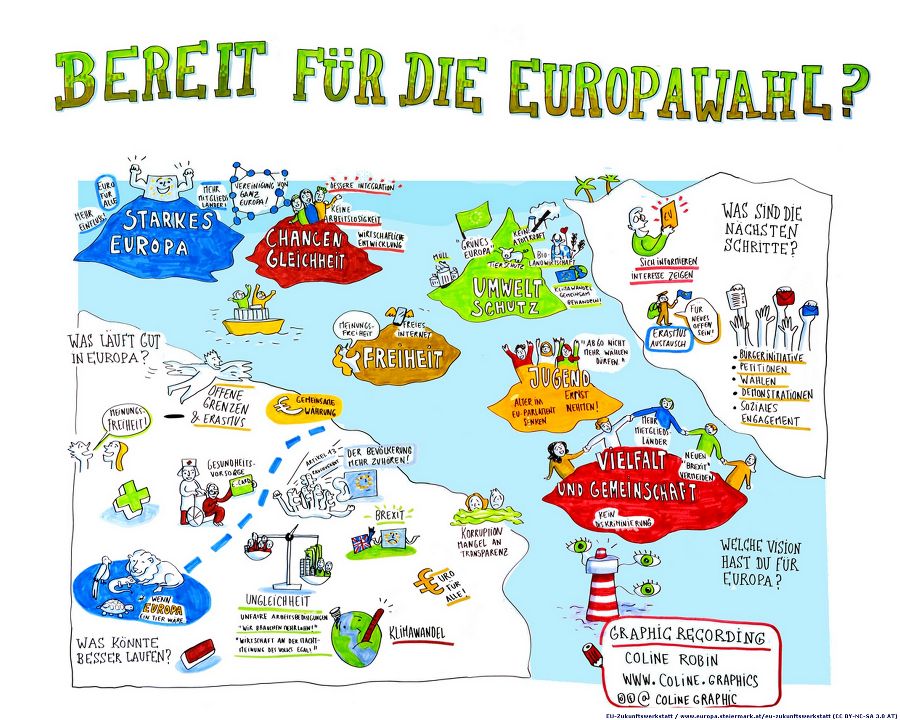 BEREIT FÜR DIE EUROPAWAHL?
EURO
FÜR
ALLE
MEHR
EINFLUSS!
MEHR
MITGLIEDS
LÄNDER!
STARKES
EUROPA
VEREINIGUNG VON
GANZ
EUROPA!
"BESSERE INTEGRATION
KEINE
ARBEITSLOSIGKEIT
WIRTSCHAFTLICHE
ENTWICKLUNG
CHANCEN
GLEICHHEIT
"GRÜNES
EUROPA"
KEIN
ATOMKRAFT
MÜLL
TIERSCHUTZ
BIO-
LANDWIRTSCHAFT
KLIMAWANDEL
GEMEINSAM
BEHANDELN!
UMWELT
SCHUTZ
EU
SICH INFORMIEREN
INTERESSE ZEIGEN
ERASMUS
AUSTAUSCH
FÜR
NEUES
OFFEN
SEIN!
WAS SIND DIE
NÄCHSTEN
SCHRITTE?
• BÜRGERINITIATIVE
• PETITIONEN
• WAHLEN
• DEMONSTRATIONEN
• SOZIALES
ENGAGEMENT
MEINUNGS-
FREIHEIT
FREIES
INTERNET
FREIHEIT
"AB 60 NICHT
MEHR WÄHLEN
DÜRFEN."
JUGEND
ALTER IM
EU-PARLAMENT
SENKEN
ERNST
NEHMEN!
MEHR
MITGLIEDS-
LÄNDER
NEUEN
"BREXIT"
VERMEIDEN
VIELFALT
UND GEMEINSCHAFT
KEIN
DISKRIMINIERUNG
WAS LÄUFT GUT
IN EUROPA?
OFFENE
GRENZEN
& ERASMUS
€ GEMEINSAME
WÄHRUNG
MEINUNGS-
FREIHEIT!
GESUNDHEITS-
VORSORGE
E-CARD
ARTIKEL 13
DER BEVÖLKERUNG
MEHR ZUHÖREN!
BREXIT
KORRUPTION
MANGEL AN
TRANSPARENZ
€URO
FÜR
ALLE!
WENN
EUROPA
EIN TIER WÄRE
UNGLEICHHEIT
UNFAIRE ARBEITSBEDINGUNGEN
"WIR BRAUCHEN MEHR LOHN!"
"WIRTSCHAFT AN DER MACHT-
MEINUNG DES VOLKS EGAL!"
KLIMAWANDEL
WAS KÖNNTE
BESSER LAUFEN?
WELCHE VISION
HAST DU FÜR
EUROPA?
GRAPHIC RECORDING
COLINE ROBIN
WWW.COLINE.GRAPHICS
@ COLINEGRAPHIC
EU-Zukunftswerkstatt / www.europa.steiermark.at/eu-zukunftswerkstatt (CC BY-NC-SA 3.0 AT)